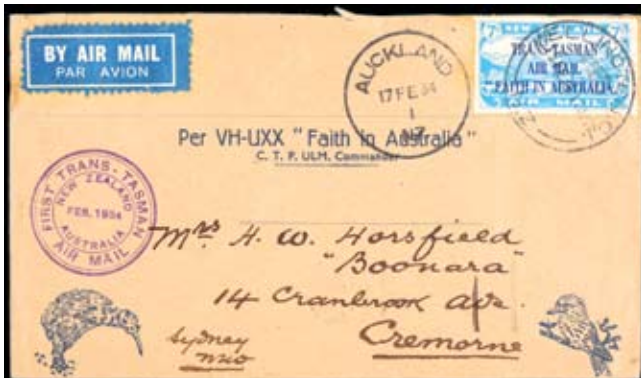 BY AIR MAIL
PAR AVION
AUCKLAND
17 FE 34
1
NZ
7D NEW ZEALAND 7D
TRANS-TASMAN
AIR MAIL
"FAITH IN AUSTRALIA."
AIR MAIL
Per VH-UXX "Faith in Australia"
C. T. P. ULM, Commander
FIRST TRANS-TASMAN
NEW ZEALAND
FEB. 1934
AUSTRALIA
AIR MAIL
Mrs H. W. Horsfield
"Boonara"
14 Cranbrook Ave.
Cremorne
Sydney